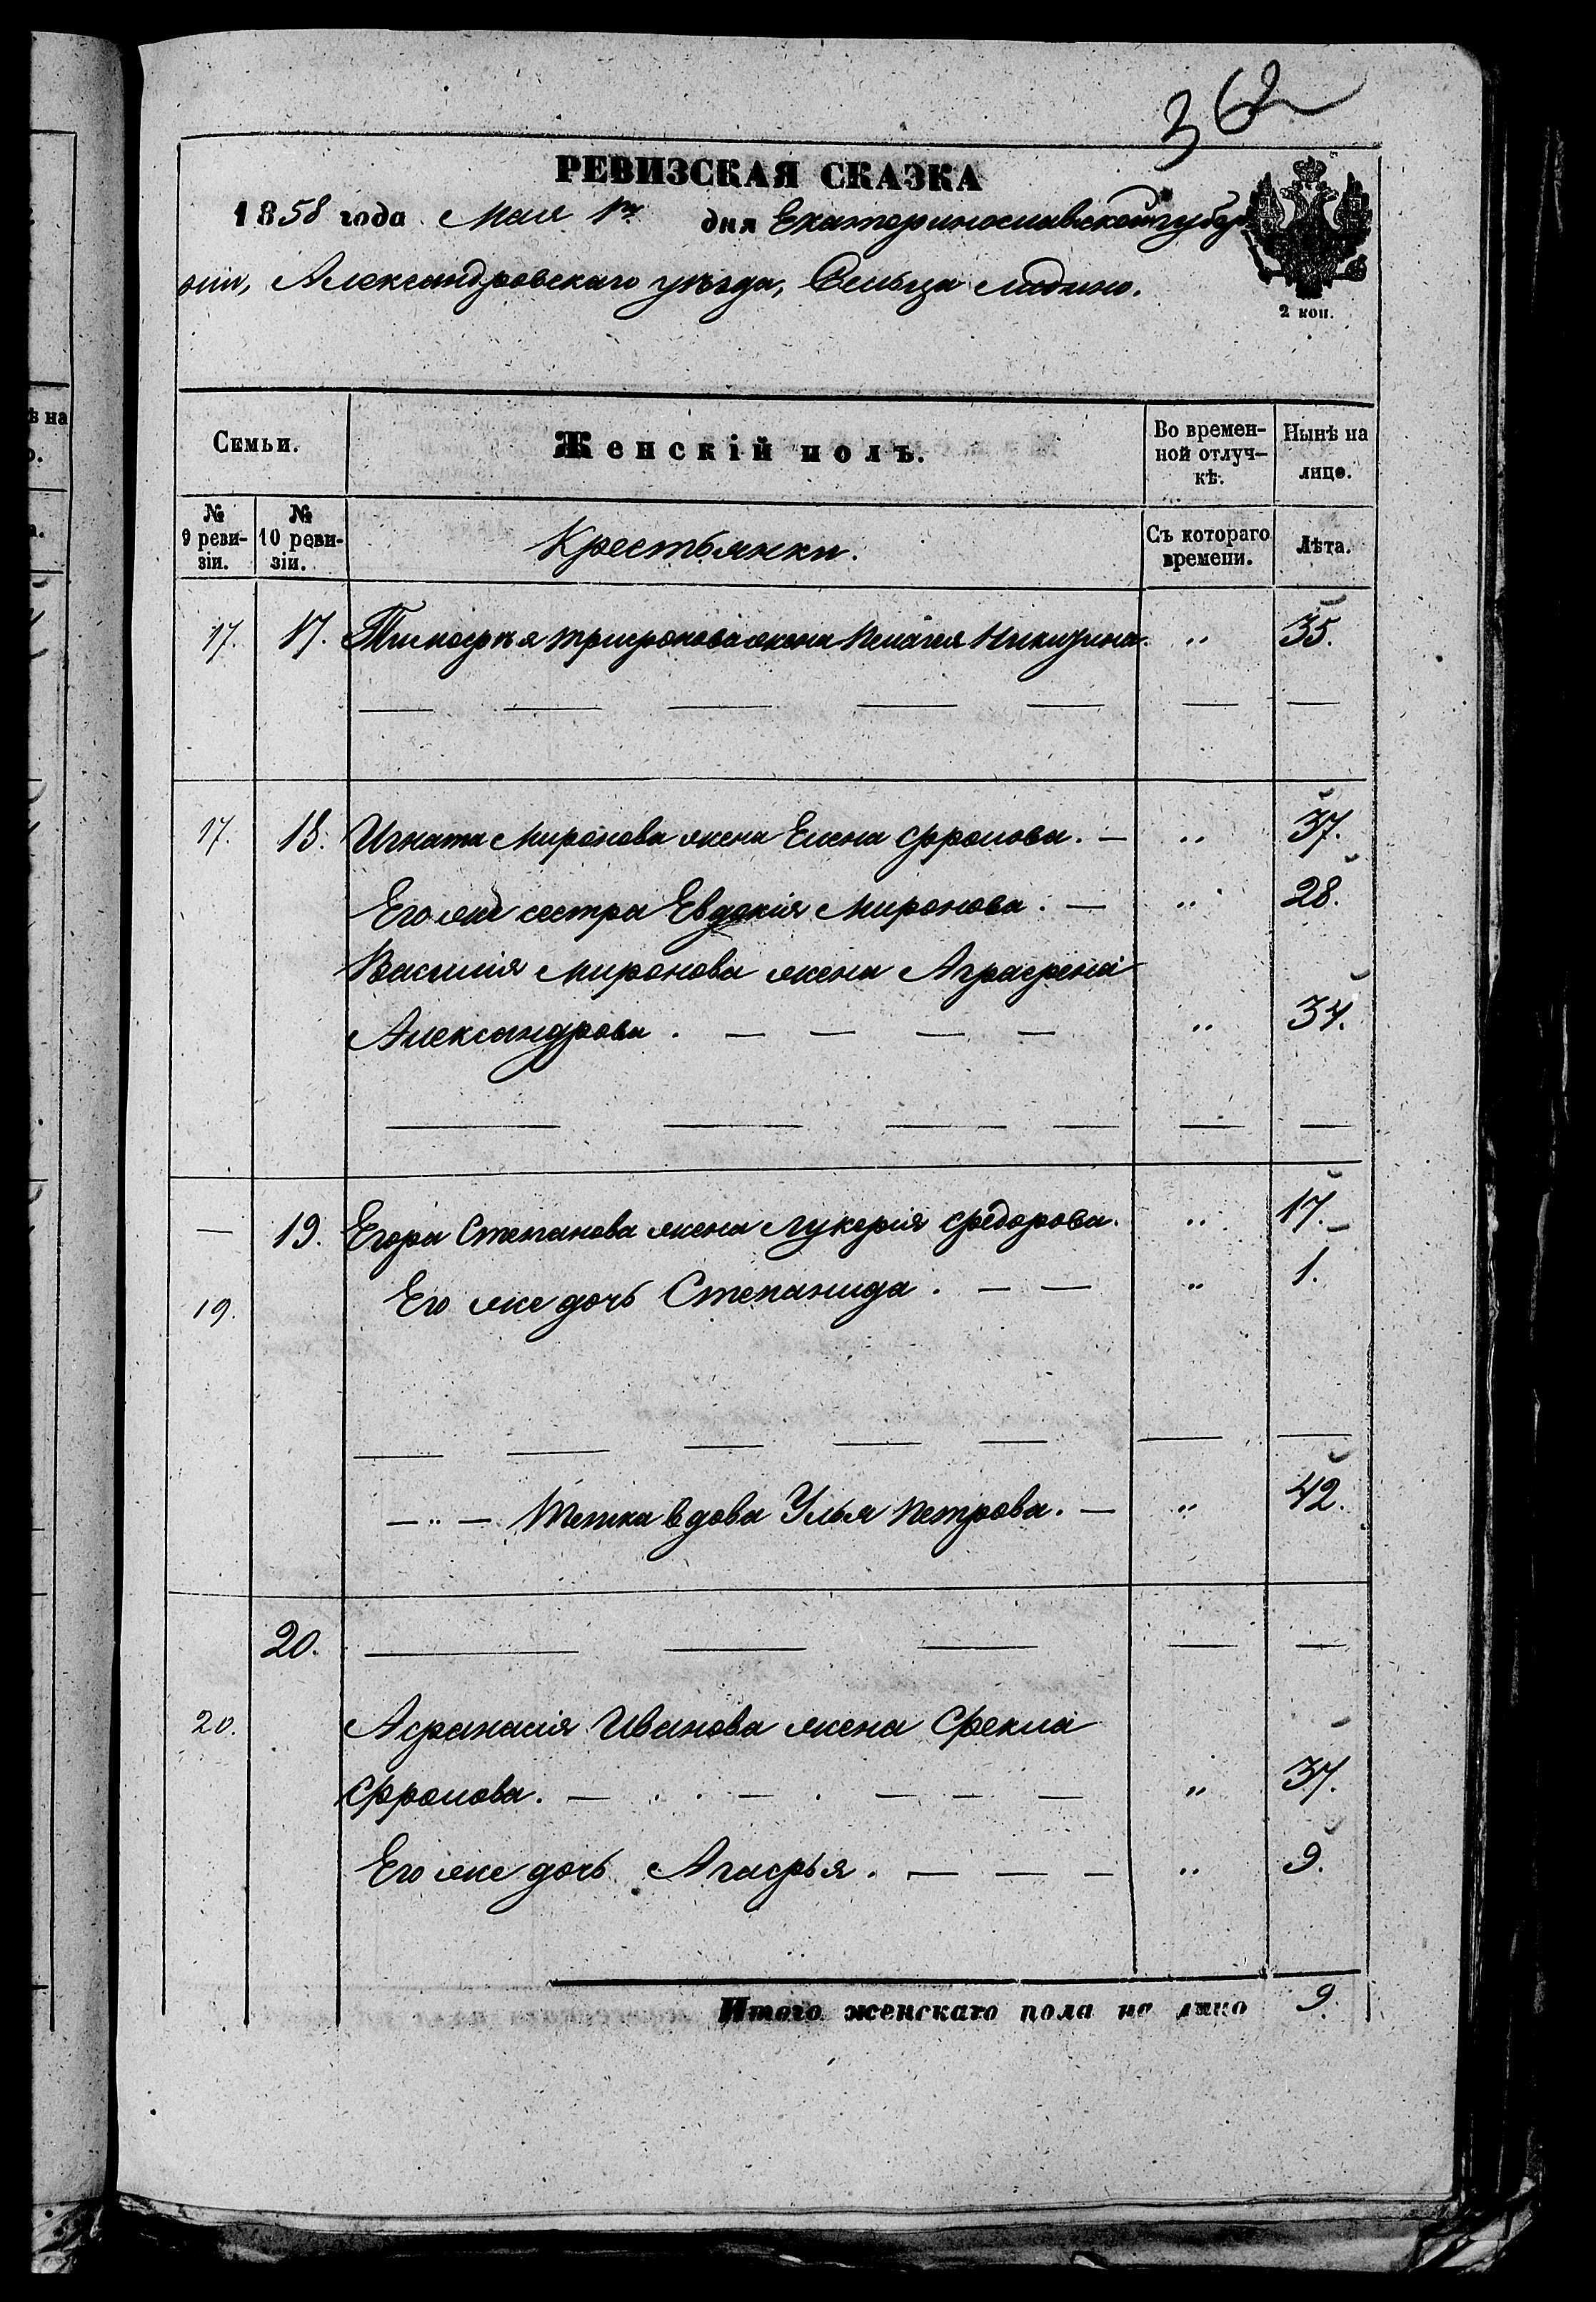 362
РЕВИЗСКАЯ СКАЗКА
1858 года Мая 1го дня Екатеринославской губер
ніи, Александровскаго уѣзда, Сельца Лидино.
2 коп.
Семьи. Женскій полъ. Во времен- Нынѣ на
ной отлуч- лицо.
кѣ.
№ 9 реви-зіи. № 10 реви-зіи. Крестьянки. Съ котораго времени. Лѣта.
17. 17. Тимофѣя Трифонова жена Пелагея Никитина. „ 35.
17. 18. Игната Миронова жена Елена Фролова. — „ 37.
Его же сестра Евдокія Миронова. — „ 28.
Василія Миронова жена Аграфена
Александрова. — — — — „ 34.
— 19. Егора Степанова жена Лукерія Федорова. „ 17.
19. Его же дочь Степанида. — — „ 1.
— „ — Тетка вдова Улья Петрова. — „ 42.
20.
20. Афанасія Иванова жена Фекла
Фролова. — „ 37.
Его же дочь Агафья. — — — „ 9.
Итого женскаго пола на лицо 9.
ѣ на